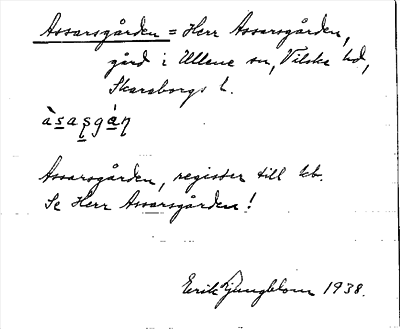 Assarsgården = Herr Assarsgården,
gård i Ullene sn, Vilske hd,
Skaraborgs l.
àsas̨gáŋ
Assarsgården, register till kb.
Se Herr Assarsgården!
Erik Ljungblom 1938.